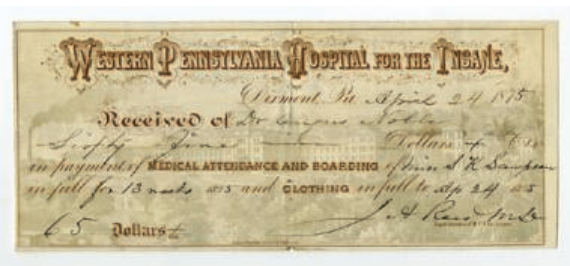 WESTERN PENNSYLVANIA HOSPITAL FOR THE INSANE,
Dixmont, Pa April 24 1875
Received of Dr
Sixty Five Dollars
in payment of MEDICAL ATTENDANCE AND BOARDING of Miss S H
in full for 13 weeks and CLOTHING in full to Ap 24
65 Dollars
J A Reed M.D.